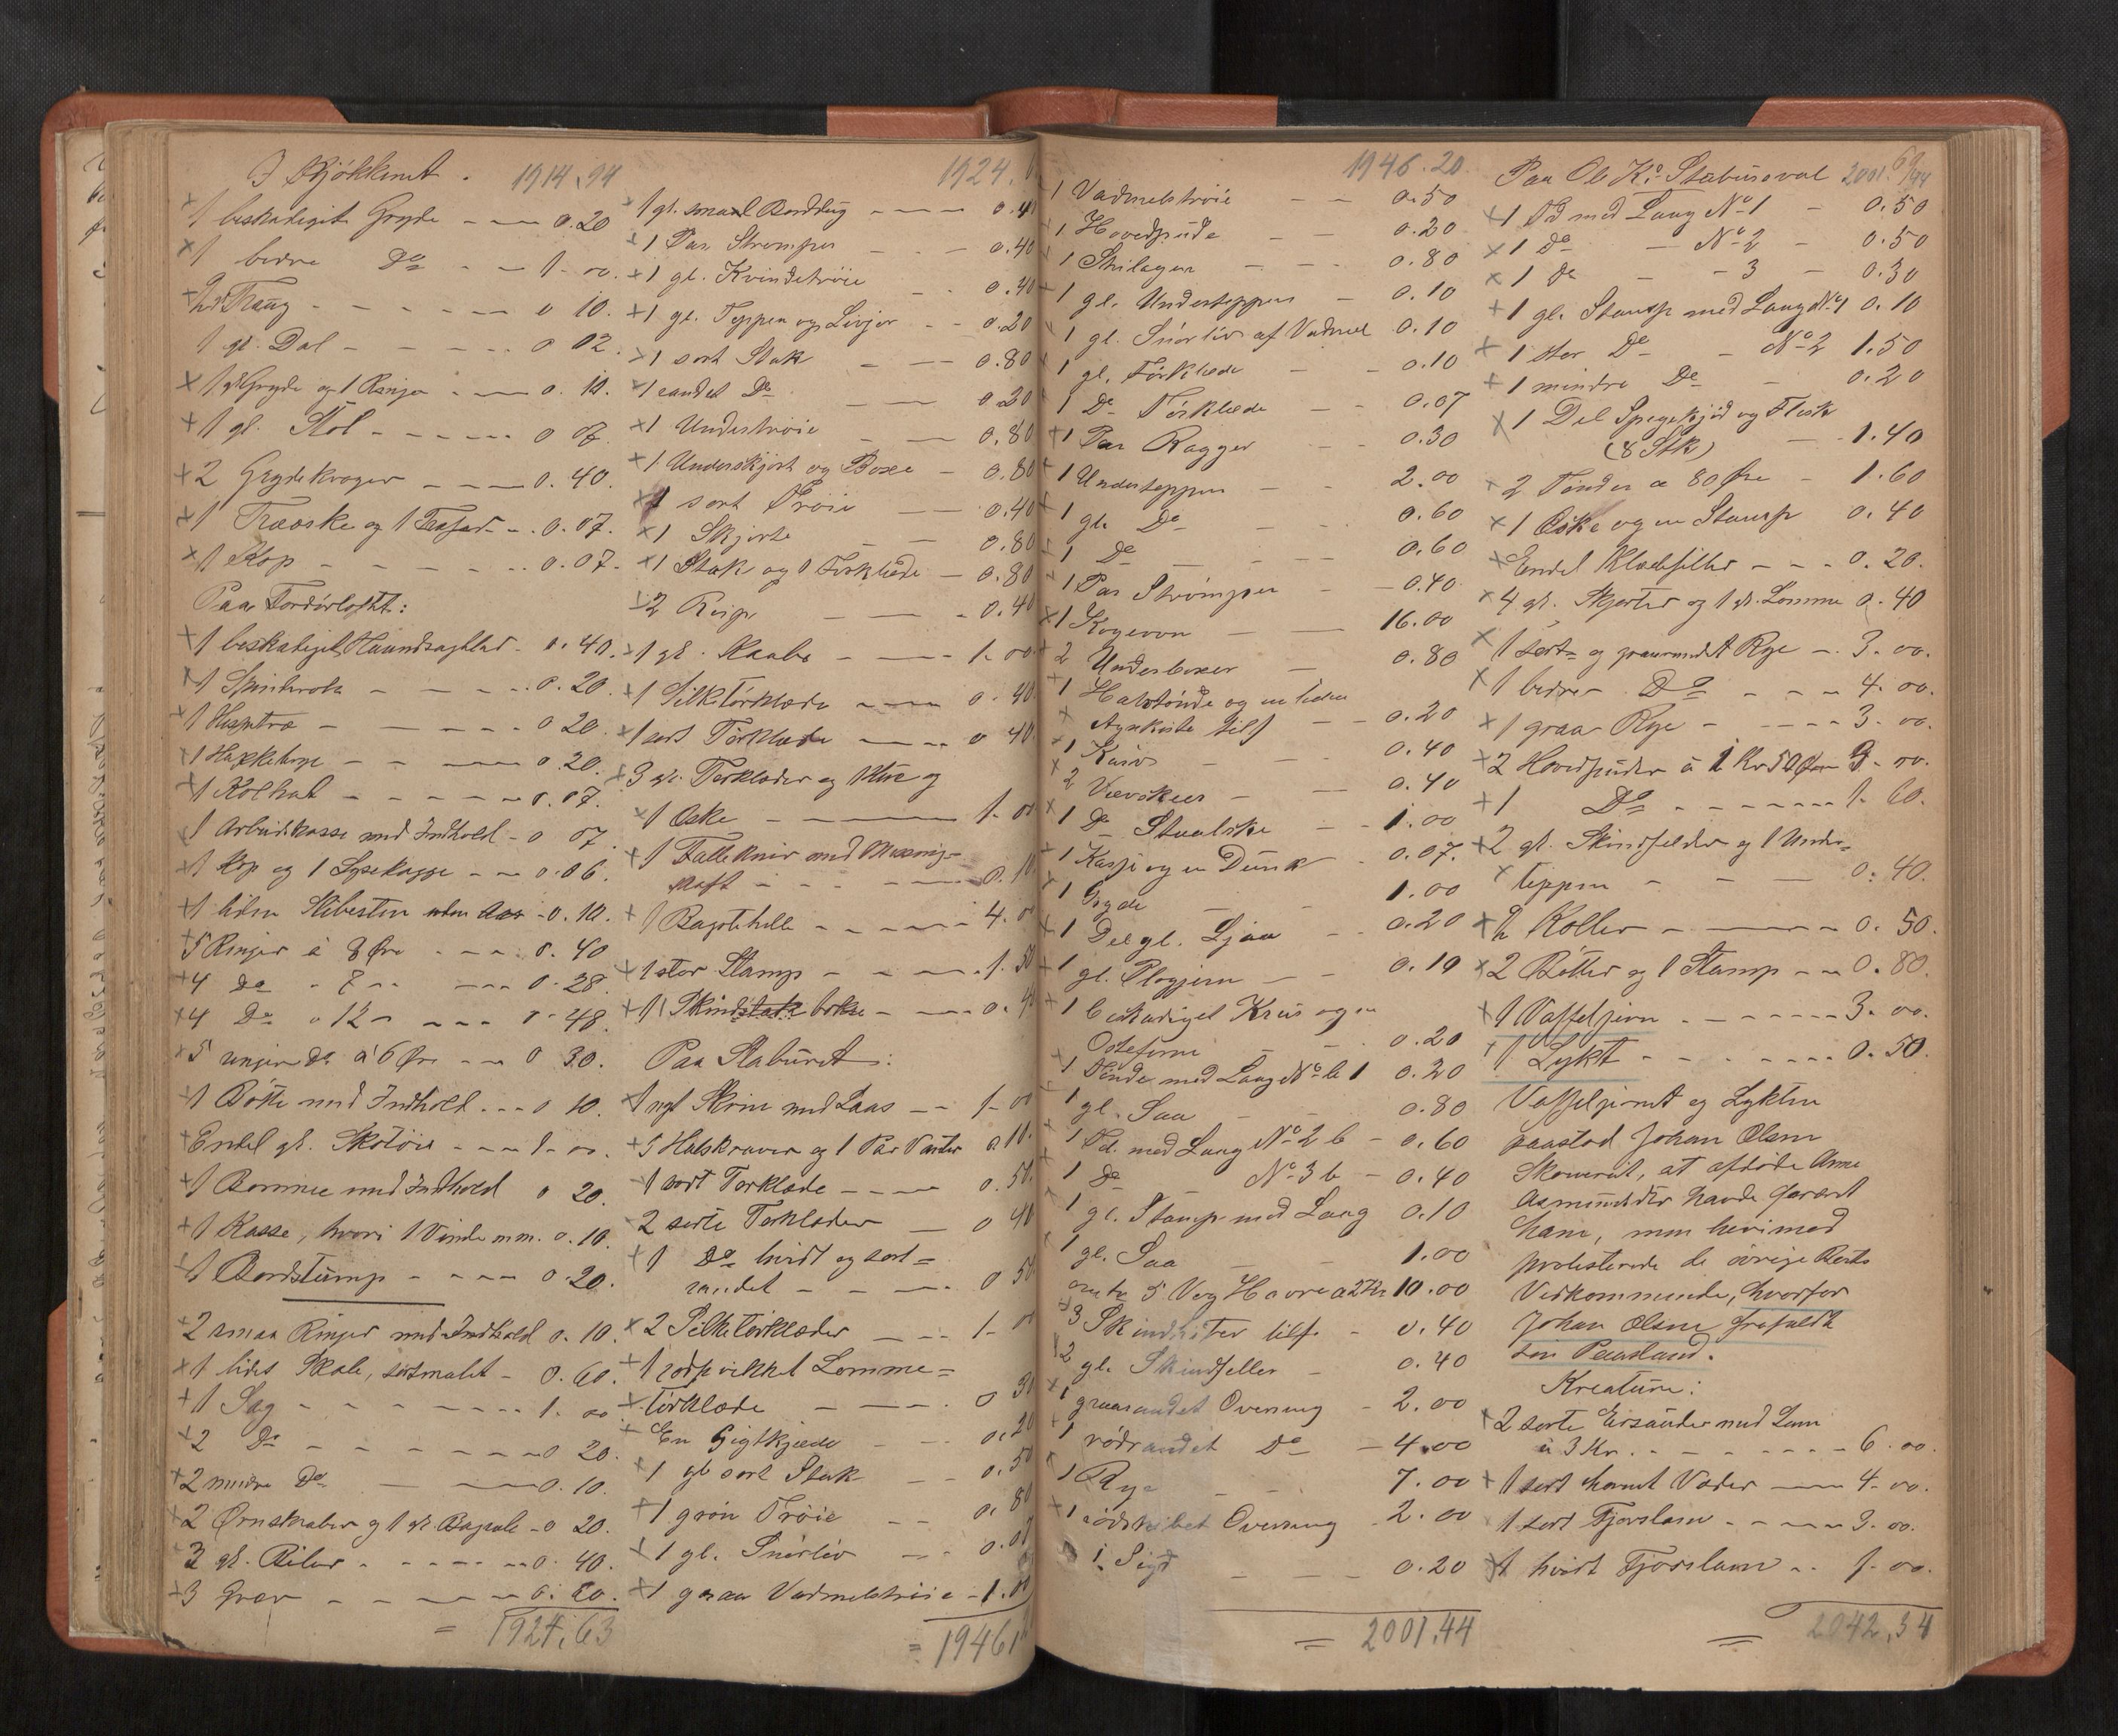 I Kjøkkenet. 1914.94
1 beskadiget Gryde 0.20
1 bedre Do 1.00
Traug 0 10.
1 gl. Dal 0 02.
1 gl. Gryde og 1 Ringe 0.12.
1 gl. Stol 0 07.
2 Grydekroger 0.40.
1 Træøske og 1 0.07.
1 Kop 0.07.
Paa Fordørloftet:
1 beskadiget Haandsagblad 0.40.
1 Spinderok 0.20.
1 Hesptræ 0 20.
1 Hakke 0.20.
1 0.07.
1 Arbeidskasse med Indhold 0 07
1 Kop og 1 Lysekagge 0.06.
1 liden Slibesten uden Aas 0.10.
5 Ringer á 8 Øre 0.40
4 Do " 7 " 0.28.
4 Do " 12 " 0.48.
5 ringere Do á 6 Øre 0 30.
1 Bøtte med Indhold 0 10.
Endel gl. Skotøie 1.00.
1 Bomme med Indhold 0 20.
1 Kasse, hvori 1 Vinde m.m. 0.10.
1 Bordstump 0.20.
2 smaa Ringer med Indhold 0.10.
1 lidet Skab, rødmalet 0.60.
1 Sag 1.00.
2 Do 0 20.
2 mindre Do 0.10.
2 Ørneskraber og 1 gl. 0 20.
3 gl. Biler 0.40.
3 Grev 0.20.
= 1924.63
1924.6
1 gl. smaal Borddug 0.4
1 Par Strømper 0.40
1 gl. Kvindetrøie 0.40
1 gl. Teppe og Livjor 0.20
1 sort Stak 0.80
1 randet Do 0.20
1 Undertrøie 0.80
1 Underskjørt og Boxe 0.80
1 sort Trøie 0.40
1 Skjorte 0.80
1 Stak og 1 Forklæde 0.80
2 Rispe 0.40
1 gl. Kaabe 1.00
1 Silketørklæde 0.40
1 sort Tørklæde 0 40.
3 gl. Tørklæder og 1 Hue og
1 Æske 1.00
1 Falleknir med Messing-
skaft 0.10
1 Bagstehelle 4.0
1 stor Stamp 1.50
1 Skindstak bokse 0.4
Paa Staburet:
1 nyt Skrin med Laas 1.00
5 Halskraver og 1 Par Vanter 0.10.
1 sort Tørklæde 0.50.
2 sorte Tørklæder 0 40
1 Do hvidt og sort-
randet 0 50
2 Silketørklæder 1.00
1 rødprikket Lomme-
tørklæde 0 30
En Gigtkjæde 0.20
1 gl. sort Stak 0.50
1 grøn Trøie 0.80
1 gl. Snørliv 0.07
1 graa Vadmelstrøie 1.00
= 1946.2
1946.20
1 Vadmelstrøie 0.50
1 Hovedpude 0.20
1 Strilagen 0.80
1 gl. Underteppen 0.10
1 gl. Snørliv af Vadmel 0.10
1 gl. Forklæde 0.10
1 Do Forklæde 0.07
1 Par Ragger 0.30
1 Underteppen 2.00
1 gl. Do 0.60
1 Do 0.60
1 Par Strømper 0.40
1 Kogeovn 16.00
2 Underboxer 0.80
1 Halvtønde og en liden
Agnkiste 0.20
1 Kurv 0.40
2 Vævskeer 0.40
1 Do Staalske 1.00
1 Kasse og en Dunk 0.07.
1 Gryde 1.00
1 Del gl. Ljaa 0.20
1 gl. Plogjern 0.19
1 beskadiget Krus og en
Osteform 0.20
1 Tønde med Laag No b 1 0.20
1 gl. Saa 0.80
1 Do. med Laag No 2 b 0.60
1 Do No 3 b 0.40
1 gl. Stamp med Laag 0.10
1 gl. Saa 1.00
5 Vog Havre a 2 Kr 10.00
3 Skindsiter 0.40
2 gl. Skindfeller 0.40
1 graarandet Overrung 2.00
1 rødrandet Do 4.00
1 Rye 7.00
1 rødstribet Overrung 2.00
1 Sigt 0.20
= 2001.44
69
Paa Ole Ks. Stabursval 2001.44
1 Td med Laag No 1 0.50
1 Do No 2 0.50
1 Do 3 0.30
1 gl. Stamp med Laag No 1 0.10
1 stor Do No 2 1.50
1 mindre Do 0.20
1 Del Spegekjød og Flesk
(8 Stk) 1.40
2 Tønder a 80 Øre 1.60
1 Æske og en Stamp 0.40
Endel Klædefiller 0.20.
4 gl. Skjorter og 1 gl. Lomme 0.40
1 sort- og graarandet Rye 3.00.
1 bedre Do 4.00.
1 graa Rye 3.00.
2 Hovedpuder á 1 Kr 50 Øre 3.00.
1 Do 1.60.
2 gl. Skindfelder og 1 Under-
teppen 0.40.
2 Koller 0.50.
2 Bøtter og 1 Stamp 0.80.
1 Vaffeljern 3.00.
1 Lykt 0.50.
Vaffeljernet og Lykten
paastod Johan Olsen
, at afdøde Anne
Asmundsdtr havde foræret
ham, men herimod
protesterede de øvrige Bo
Vedkommende, hvorfor
Johan Olsen frafaldt
sin Paastand.
Kreature:
2 sorte Eirsauder med Lam
á 3 Kr. 6.00.
1 sort hornet Væder 4.00.
1 sort Fjorslam 3.00.
1 hvidt Fjorslam 1.00.
= 2042.34